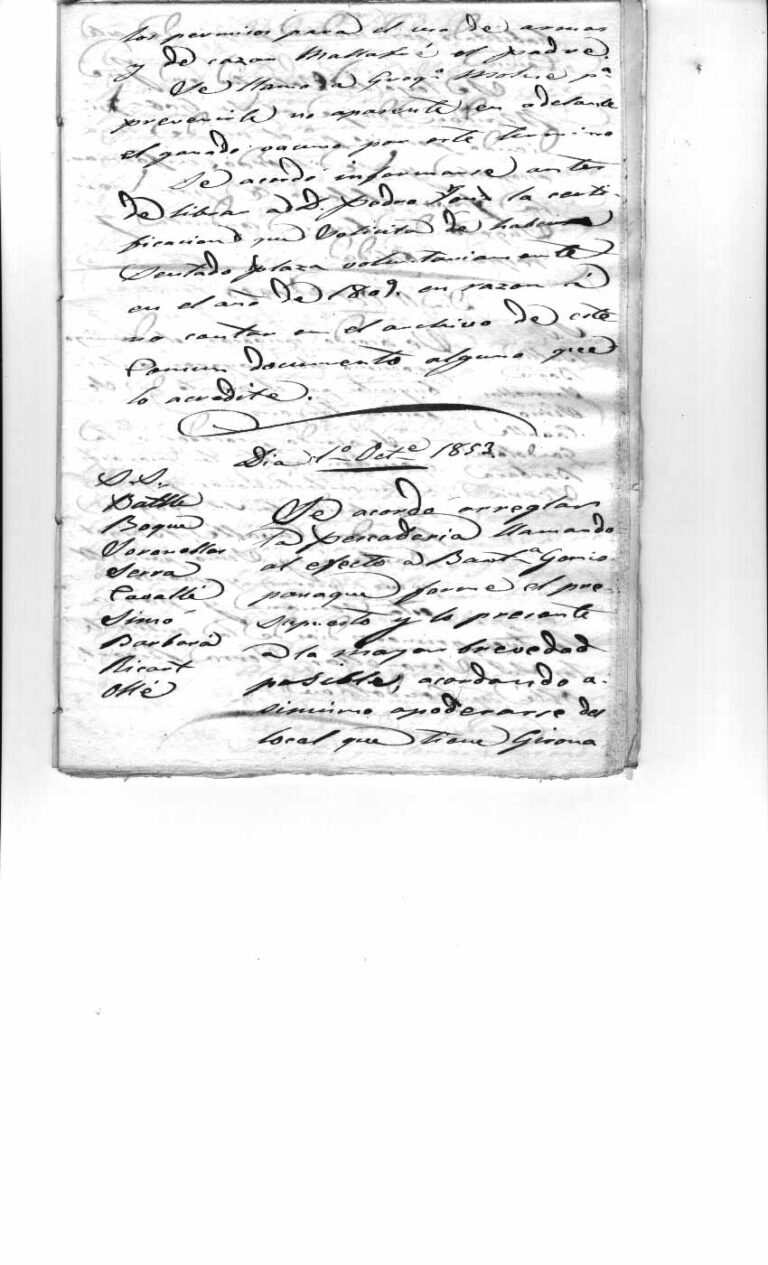 los permisos para el uso de armas
y de cazar Mallafré el padre.
Se llamo a Greg.º Moline p.ª
prevenirle no aparente en adelante
el ganado vacuno por este termino
Se acordó informarse antes
de librar a D. Pedro la certi-
ficacion que solicita de haberse
sentado plaza voluntariamente
en el año de 1809. en razon á
no constar en el archivo de este
Comun documento alguno que
lo acredite.
Dia 1º Oct.e 1853.
S.S.
Batlle
Boque
Soronellas
Serra
Cavallé
Simó
Barbará
Ricart
Ollé
Se acordó arreglar
la Pescaderia llamando
al efecto a Baut.ª Gomis
paraque forme el pre-
supuesto y lo presente
a la mayor brevedad
posible, acordando a-
simismo apoderarse del
local que tiene Girona